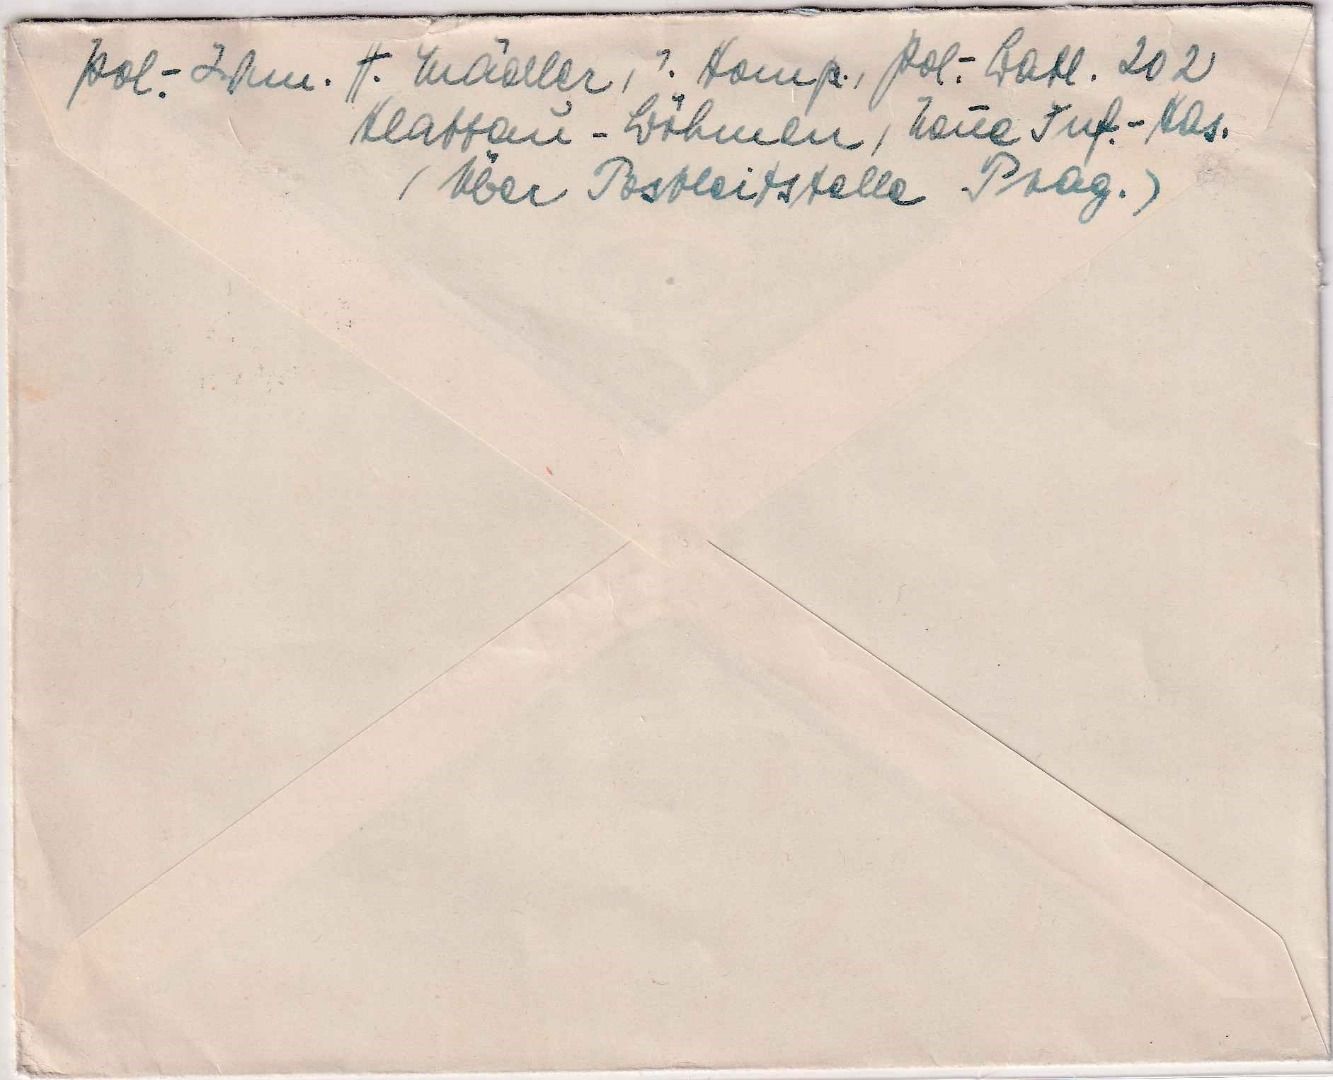 Pol.- H. Mädler, Komp., Pol.-Batl. 202
Klattau - Böhmen, Neue Inf.-Kas.
(Über Postleitstelle Prag.)